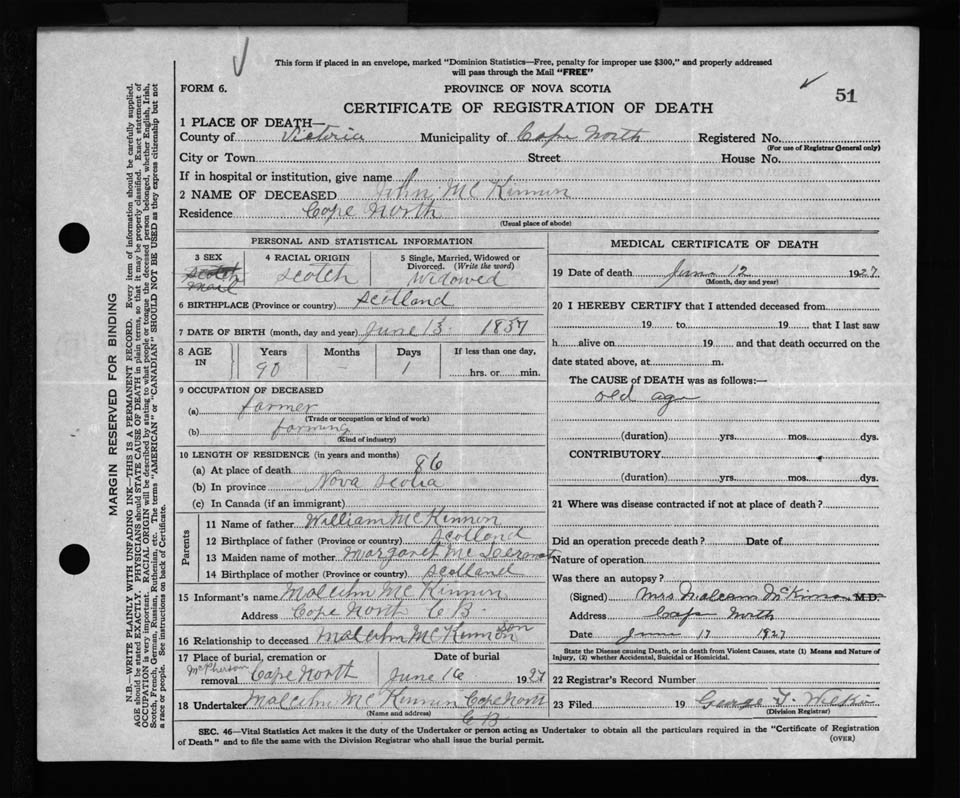 This form if placed in an envelope, marked "Dominion Statistics—Free, penalty for improper use $300," and properly addressed
will pass through the Mail "FREE"
FORM 6.
PROVINCE OF NOVA SCOTIA
51
CERTIFICATE OF REGISTRATION OF DEATH
1 PLACE OF DEATH—
County of Victoria Municipality of Cape North Registered No.
(For use of Registrar General only)
City or Town Street House No.
If in hospital or institution, give name
2 NAME OF DECEASED John McKinnon
Residence Cape North
(Usual place of abode)
PERSONAL AND STATISTICAL INFORMATION
3 SEX
Scotch
Mail
4 RACIAL ORIGIN
Scotch
5 Single, Married, Widowed or
Divorced. (Write the word)
Widowed
6 BIRTHPLACE (Province or country) Scotland
7 DATE OF BIRTH (month, day and year) June 13 1837
8 AGE IN
Years Months Days If less than one day,
90 - 1 hrs. or min.
9 OCCUPATION OF DECEASED
(a) farmer
(Trade or occupation or kind of work)
(b) farming
(Kind of industry)
10 LENGTH OF RESIDENCE (in years and months)
(a) At place of death 86
(b) In province Nova Scotia
(c) In Canada (if an immigrant)
Parents
11 Name of father William McKinnon
12 Birthplace of father (Province or country) Scotland
13 Maiden name of mother Margaret
14 Birthplace of mother (Province or country) Scotland
15 Informant's name Malcolm McKinnon
Address Cape North C B
16 Relationship to deceased Malcolm McKinnon son
17 Place of burial, cremation or removal Date of burial
McPherson Cape North June 16 1927
18 Undertaker Malcolm McKinnon Cape North
(Name and address)
C B
MEDICAL CERTIFICATE OF DEATH
19 Date of death June 12 1927
(Month, day and year)
20 I HEREBY CERTIFY that I attended deceased from
19 to 19 that I last saw
h alive on 19 and that death occurred on the
date stated above, at m.
The CAUSE of DEATH was as follows:—
old age
(duration) yrs. mos. dys.
CONTRIBUTORY
(duration) yrs. mos. dys.
21 Where was disease contracted if not at place of death?
Did an operation precede death? Date of
Nature of operation
Was there an autopsy?
(Signed) Mrs Malcolm McKinnon M.D.
Address Cape North
Date June 17 1927
State the Disease causing Death, or in death from Violent Causes, state (1) Means and Nature of
Injury, (2) whether Accidental, Suicidal or Homicidal.
22 Registrar's Record Number
23 Filed 19 George
(Division Registrar)
SEC. 46—Vital Statistics Act makes it the duty of the Undertaker or person acting as Undertaker to obtain all the particulars required in the "Certificate of Registration
of Death" and to file the same with the Division Registrar who shall issue the burial permit.
(OVER)
MARGIN RESERVED FOR BINDING
N.B.—WRITE PLAINLY WITH UNFADING INK—THIS IS A PERMANENT RECORD. Every item of information should be carefully supplied.
AGE should be stated EXACTLY. PHYSICIANS should STATE CAUSE OF DEATH in plain terms, so that it may be properly classified. Exact statement of
OCCUPATION is very important. RACIAL ORIGIN will be described by stating to what people or tongue the deceased person belonged, whether English, Irish,
Scotch, French, German, Russian, Ruthenian, etc. The terms "AMERICAN" or "CANADIAN" SHOULD NOT BE USED as they express citizenship but not
a race or people. See instructions on back of Certificate.